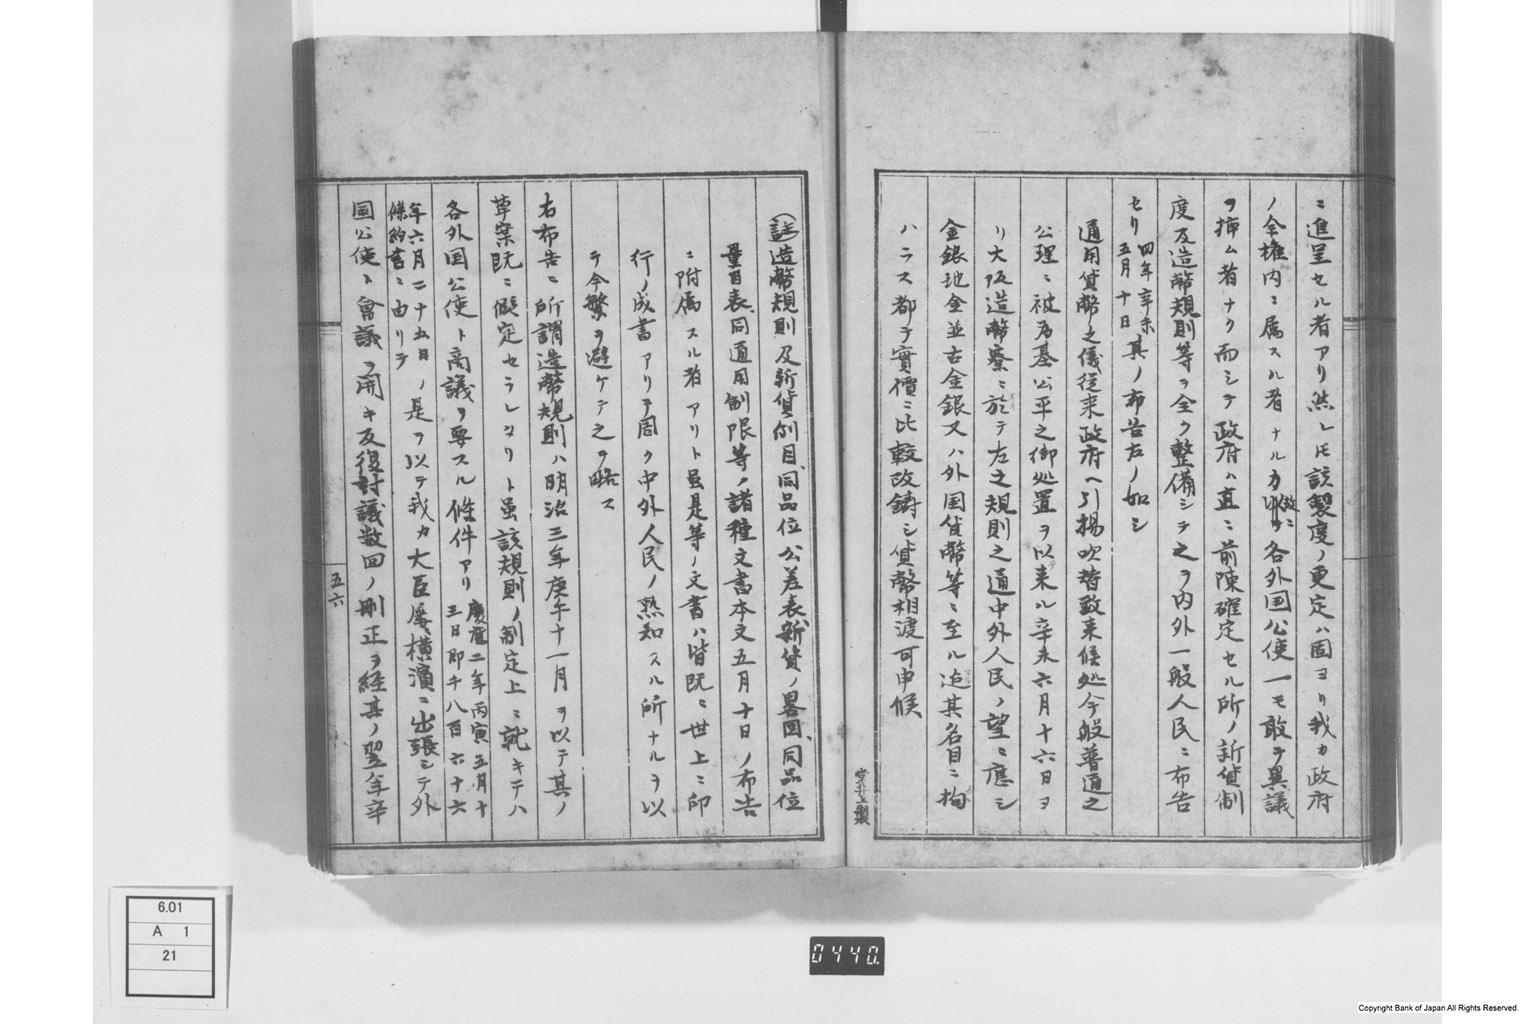 ニ進呈セル者アリ然レ𪜈該製度ノ更定ハ固ヨリ我カ政府
ノ全権内ニ属スル者ナルカ故ニ各外国公使一モ敢テ異議
ヲ挿ム者ナク而シテ政府ハ直ニ前陳確定セル所ノ新貨制
度及造幣規則等ヲ全ク整備シテ之ヲ内外一般人民ニ布告
セリ四年辛未五月十日其ノ布告左ノ如シ
通用貨幣之儀従来政府ヘ引揚吹替致来候処今般普通之
公理ニ被為基公平之御処置ヲ以来ル辛未六月十六日ヨ
リ大阪造幣寮ニ於テ左之規則之通中外人民ノ望ニ應シ
金銀地金並古金銀又ハ外国貨幣等ニ至ル迄其名目ニ拘
ハラス都テ實價ニ比較改鋳シ貨幣相渡可申候
堂上製
(註)造幣規則及新貨例目、同品位公差表、新貨ノ畧図、同品位
量目表、同通用制限等ノ諸種文書本文五月十日ノ布告
ニ附属スル者アリト虽是等ノ文書ハ皆既ニ世上ニ印
行ノ成書アリテ周ク中外人民ノ熟知スル所ナルヲ以
テ今繁ヲ避ケテ之ヲ略ス
右布告ニ所謂造幣規則ハ明治三年庚午十一月ヲ以テ其ノ
草案既ニ假定セラレタリト虽該規則ノ制定上ニ就キテハ
各外国公使ト商議ヲ要スル條件アリ慶應二年丙寅五月十三日即千八百六十六
年六月二十五日ノ條約書ニ由リテ是ヲ以テ我カ大臣屡横濱ニ出張シテ外
国公使ト會議ヲ開キ反復討議数回ノ刪正ヲ経其ノ翌年辛
五六
6.01
A 1
21
0440.
Copyright Bank of Japan All Rights Reserved.